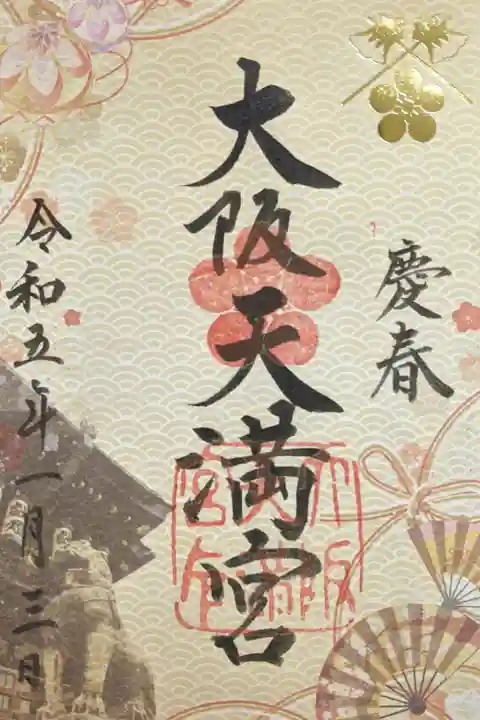 慶春
大阪天満宮
令和五年一月三日